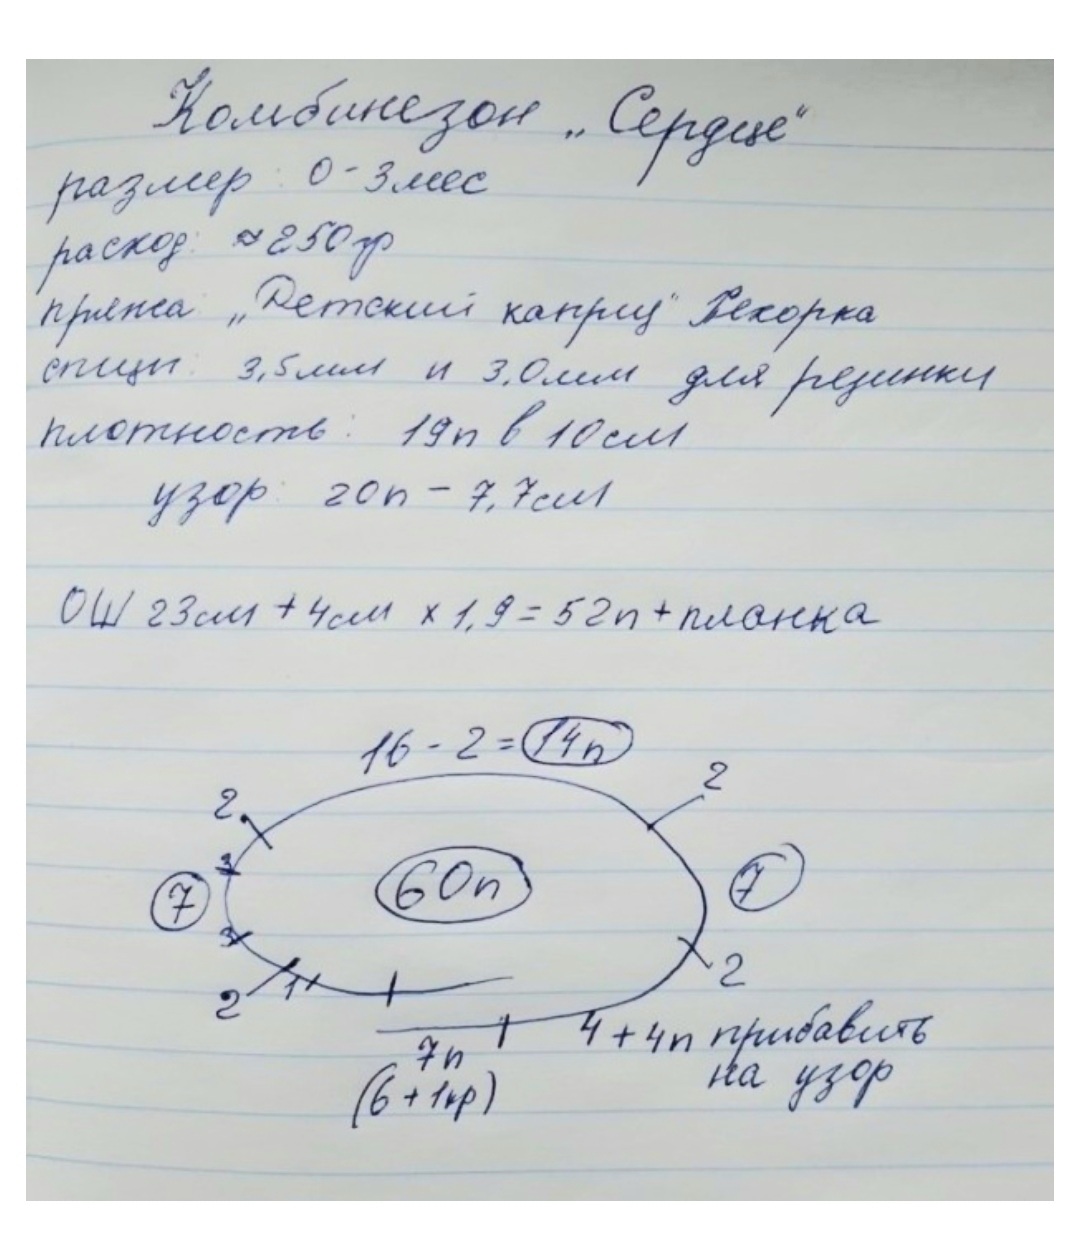 Комбинезон „Сердце“
размер: 0-3мес
расход: ≈250гр
пряжа „Детский каприз“ Пехорка
спицы: 3,5мм и 3,0мм для резинки
плотность: 19п в 10см
узор: 20п - 7,7см
ОШ 23см + 4см × 1,9 = 52п + планка
16 - 2 = 14п
2
2
3
7
60п
7
3
2
1
2
4 + 4п прибавить
на узор
7п
(6 + 1кр)